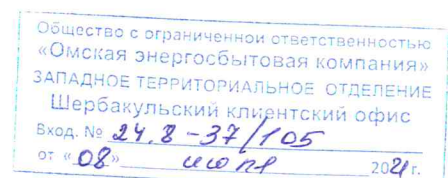 Общество с ограниченной ответственностью
«Омская энергосбытовая компания»
ЗАПАДНОЕ ТЕРРИТОРИАЛЬНОЕ ОТДЕЛЕНИЕ
Шербакульский клиентский офис
Вход. № 24.8-37/105
от «08» июля 2021 г.